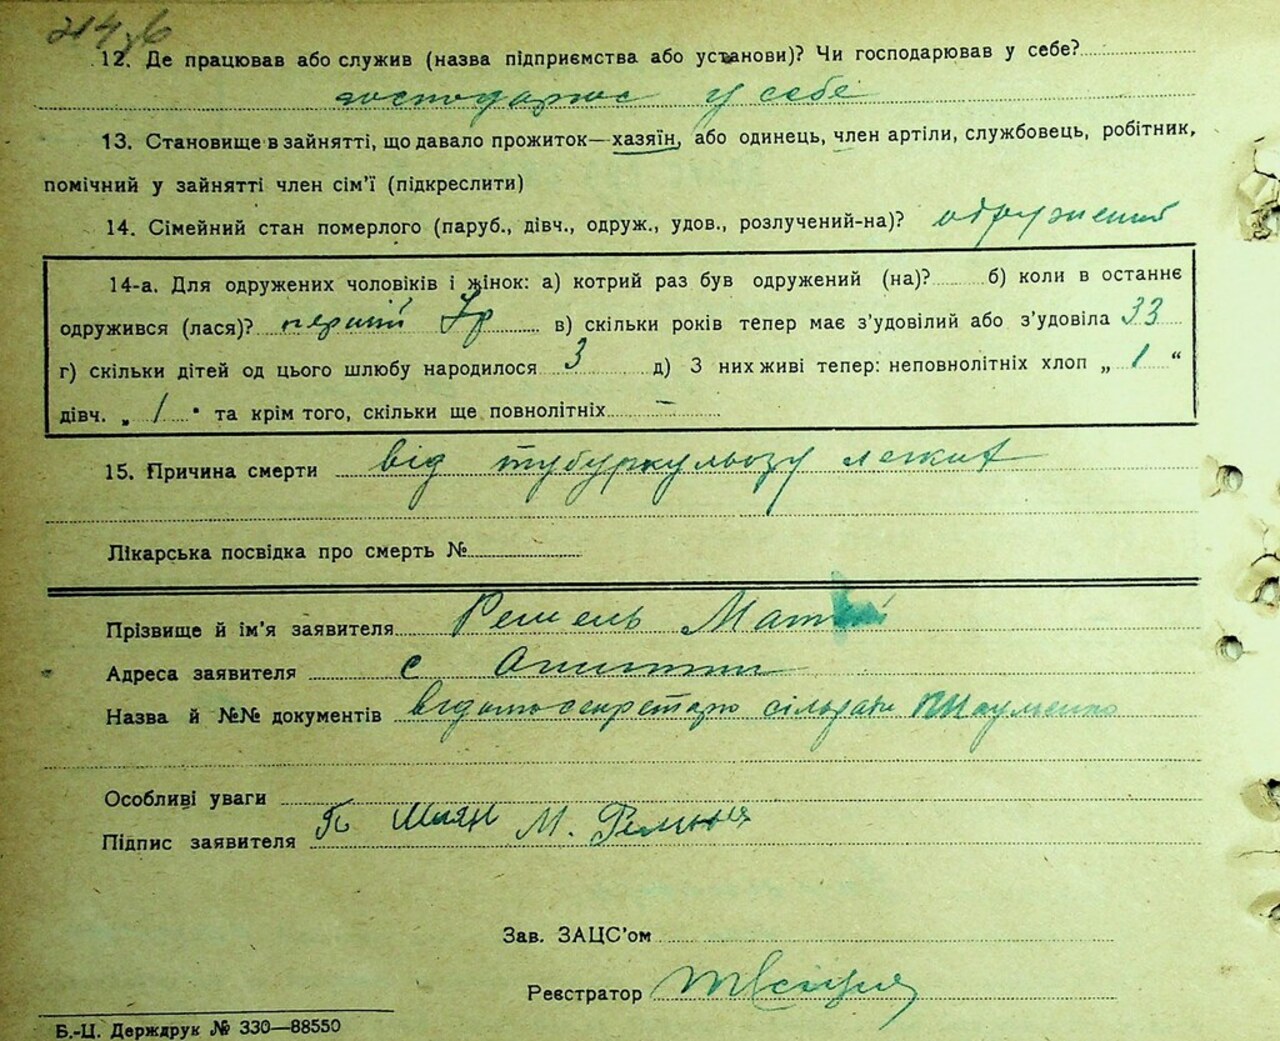 12. Де працював або служив (назва підприємства або установи)? Чи господарював у себе?
господарює у себе
13. Становище в зайнятті, що давало прожиток—хазяїн, або одинець, член артіли, службовець, робітник,
помічний у зайнятті член сім'ї (підкреслити)
14. Сімейний стан померлого (паруб., дівч., одруж., удов., розлучений-на)? одружений
14-а. Для одружених чоловіків і жінок: а) котрий раз був одружений (на)? б) коли в останнє
одружився (лася)? перший в) скільки років тепер має з'удовілий або з'удовіла 33
г) скільки дітей од цього шлюбу народилося 3 д) З них живі тепер: неповнолітніх хлоп „ 1 “
дівч. „ 1 " та крім того, скільки ще повнолітніх —
15. Причина смерти від тубуркульозу легких
Лікарська посвідка про смерть №
Прізвище й ім'я заявителя
Адреса заявителя с
Назва й №№ документів відомо секретарю сільради Науменко
Особливі уваги
Підпис заявителя М.
Зав. ЗАЦС'ом
Реєстратор
Б.-Ц. Держдрук № 330—88550